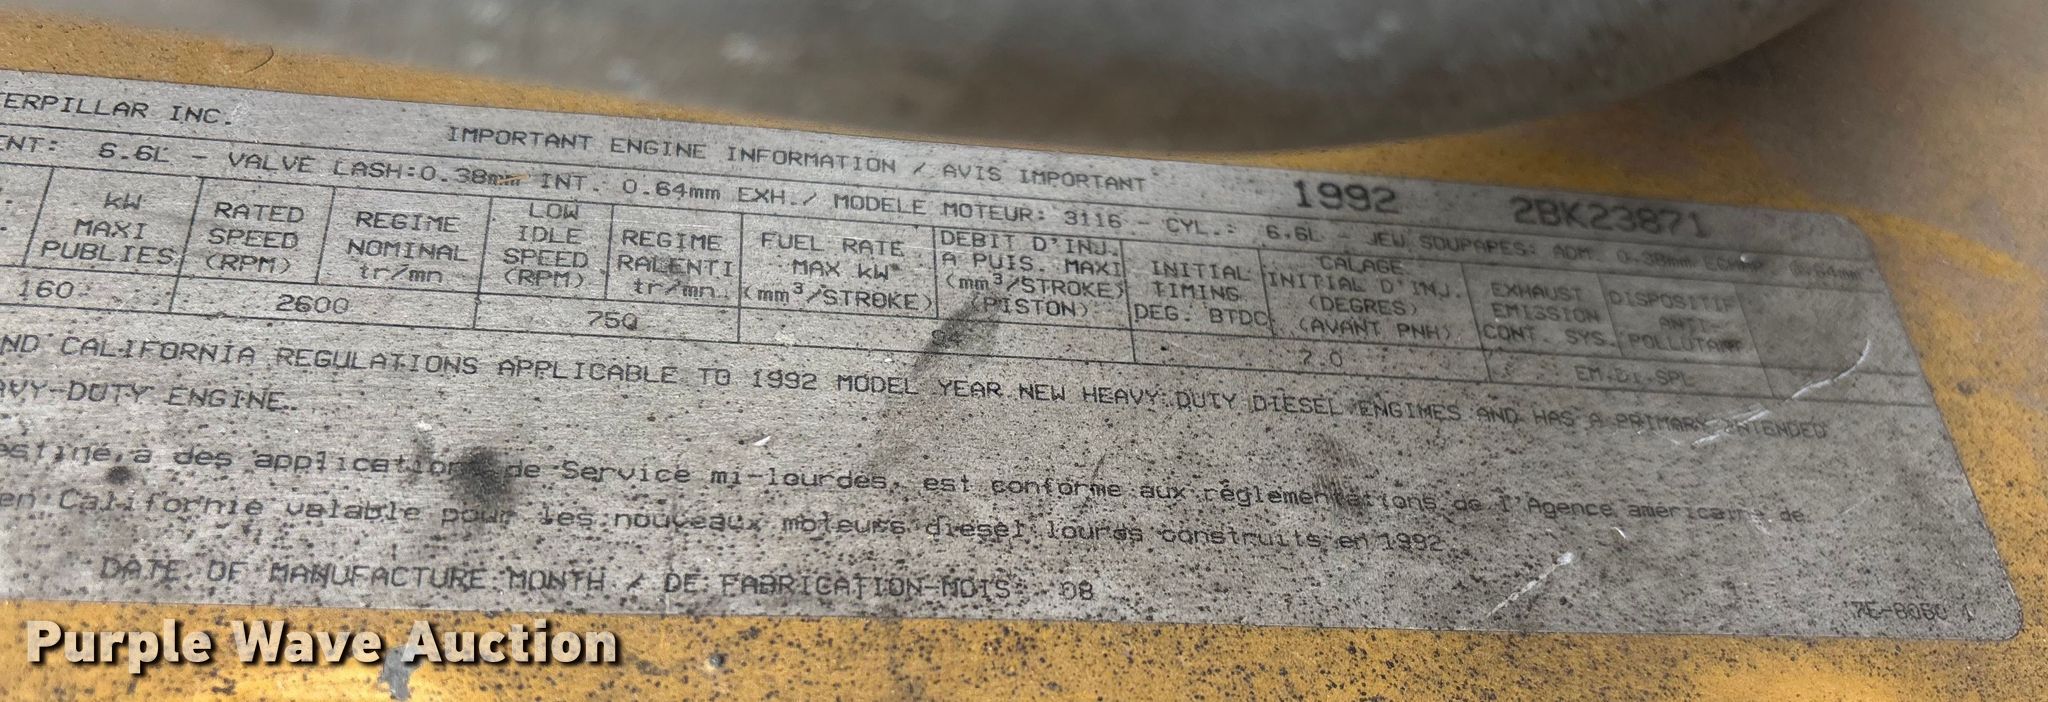 TERPILLAR INC.
IMPORTANT ENGINE INFORMATION / AVIS IMPORTANT 1992 2BK23871
ENT: 6.6L - VALVE LASH:0.38mm INT. 0.64mm EXH./ MODELE MOTEUR: 3116 - CYL.: 6.6L - JEU SOUPAPES: ADM. 0.38mm 0.64mm
kW MAXI PUBLIES
RATED SPEED (RPM)
REGIME NOMINAL tr/mn
LOW IDLE SPEED (RPM)
REGIME RALENTI tr/mn.
FUEL RATE MAX kW (mm³/STROKE)
DEBIT D'INJ. A PUIS. MAXI (mm³/STROKE) (PISTON)
INITIAL TIMING DEG. BTDC
CALAGE INITIAL D'INJ. (DEGRES) (AVANT PNH)
EXHAUST EMISSION CONT. SYS.
DISPOSITIF ANTI-POLLUTANT
160 2600 750 7.0
ND CALIFORNIA REGULATIONS APPLICABLE TO 1992 MODEL YEAR NEW HEAVY DUTY DIESEL ENGINES AND HAS A PRIMARY INTENDED
AVY-DUTY ENGINE.
estiné à des applications de Service mi-lourdes, est conforme aux réglementations de l'Agence américaine de
en Californie valable pour les nouveaux moteurs diesel lourds construits en 1992.
DATE OF MANUFACTURE MONTH / DE FABRICATION-MOIS 08
Purple Wave Auction